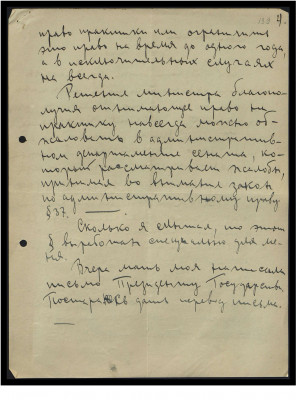 право практики или ограничить
это право на время до одного года,
а в исключительных случаях
на всегда.
Решение министра благопо-
лучия отнимающее право на
практику навсегда можно об-
жаловать в административ-
ном департаменте сената, ко-
торый рассматривает жалобы,
принимая во внимание закон
по административному праву
§ 37.
Сколько я смыслю, то этот
§ выработан специально для ме-
ня.
Вчера мать моя написала
письмо Президенту Государства.
Постараюсь дать перевод письма.